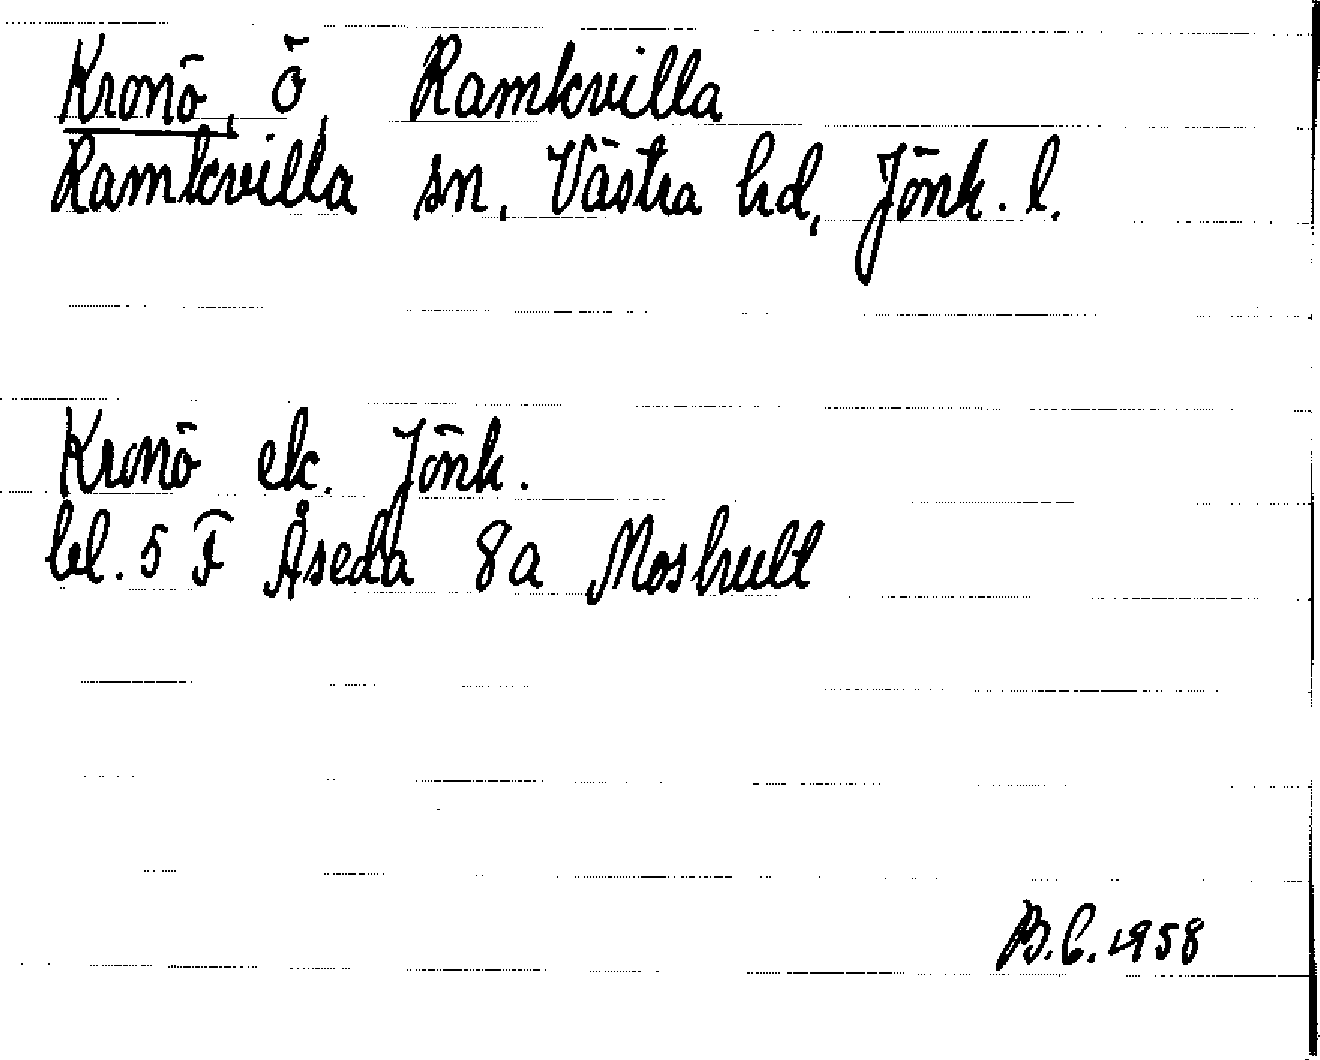 Kronö, ö Ramkvilla
Ramkvilla sn, Västra hd, Jönk. l.
Kronö ek. Jönk.
bl. 5 F Åseda 8a Moshult
B.C. 1958